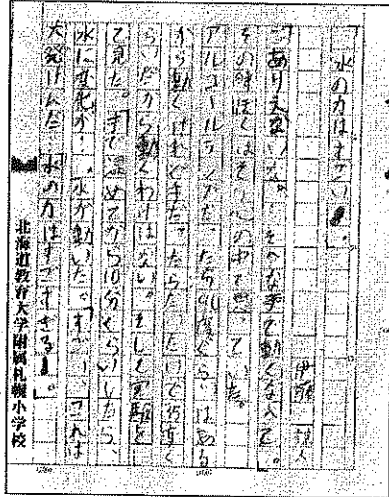 水の力はすごい。
伊藤
「ありえないな。そんな手で動くなんて。」
その時ぼくは心の中で思っていた。
アルコールランプだったら90度ぐらいはある
から動くけれどさ。だったらたいで35度く
らいだから動くわけはない。そして実験を
して見た。手で温めてから10分ぐらいしたら、
水に変化が…。「水が動いた。すごーい、これは
大発けんだ…水の力はすごすぎる。
北海道教育大学附属札幌小学校